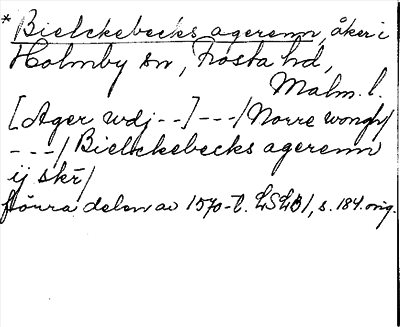 * Bielckebecks agerenn, åker i
Holmby sn, Frosta hd,
Malm. l.
[Ager wdj --] ---/ Norre wongh/
---/ Bielckebecks agerenn
ij skr̄/
Förra delen av 1570-t. LSLB1, s. 184. orig.